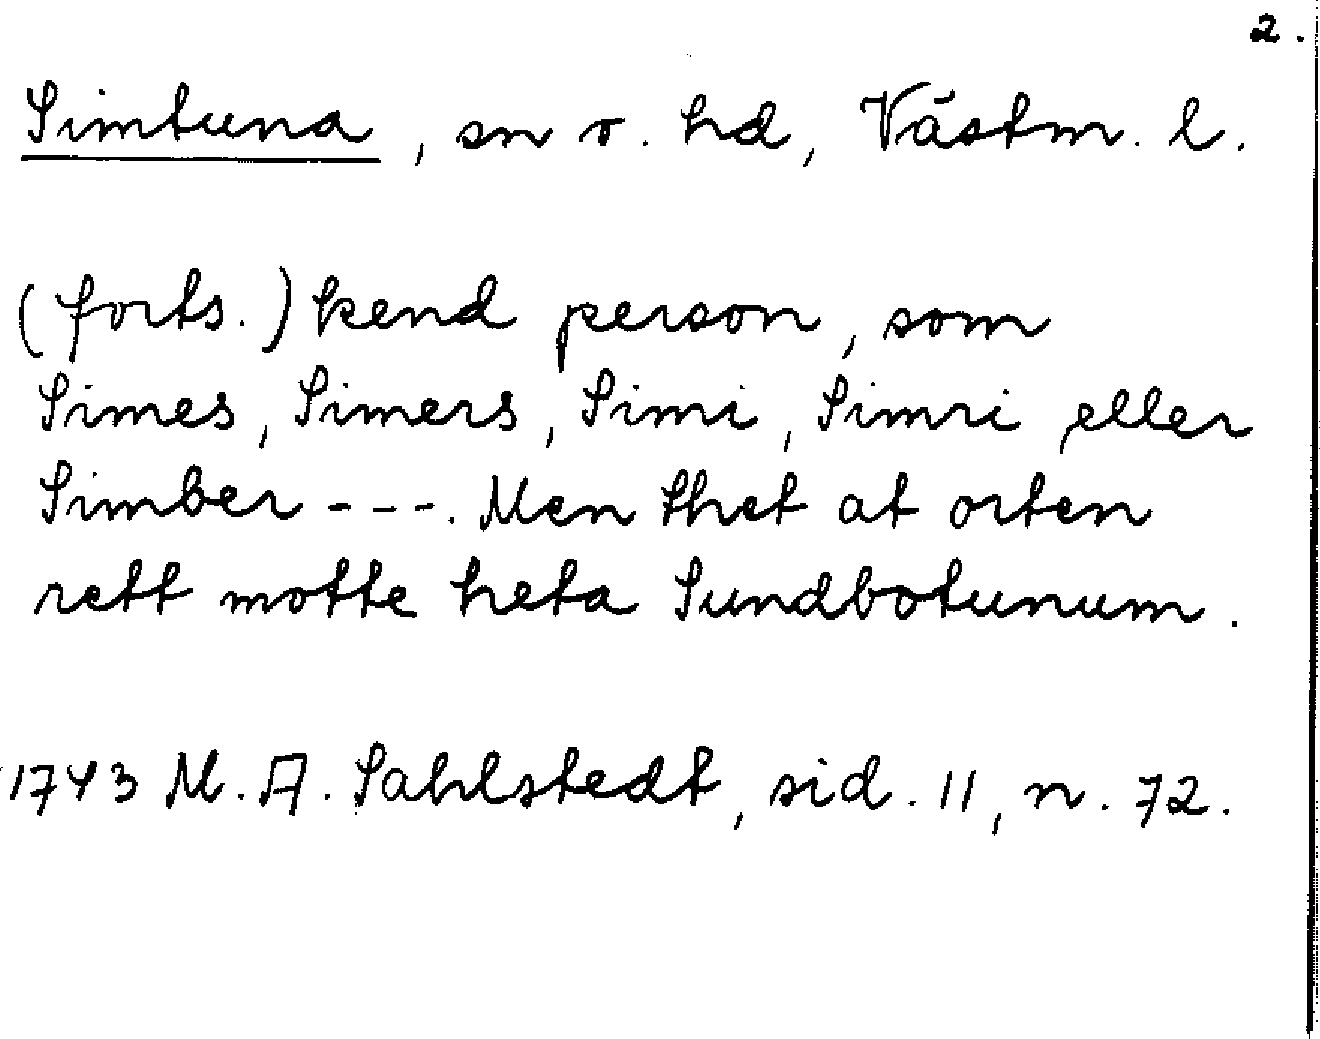 2.
Simtuna, sn o. hd, Västm. l.
(forts.) kend person, som
Simes, Simers, Simi, Simri eller
Simber ---. Men thet at orten
rett motte heta Sundbotunum.
1743 M. A. Sahlstedt, sid. 11, n. 72.